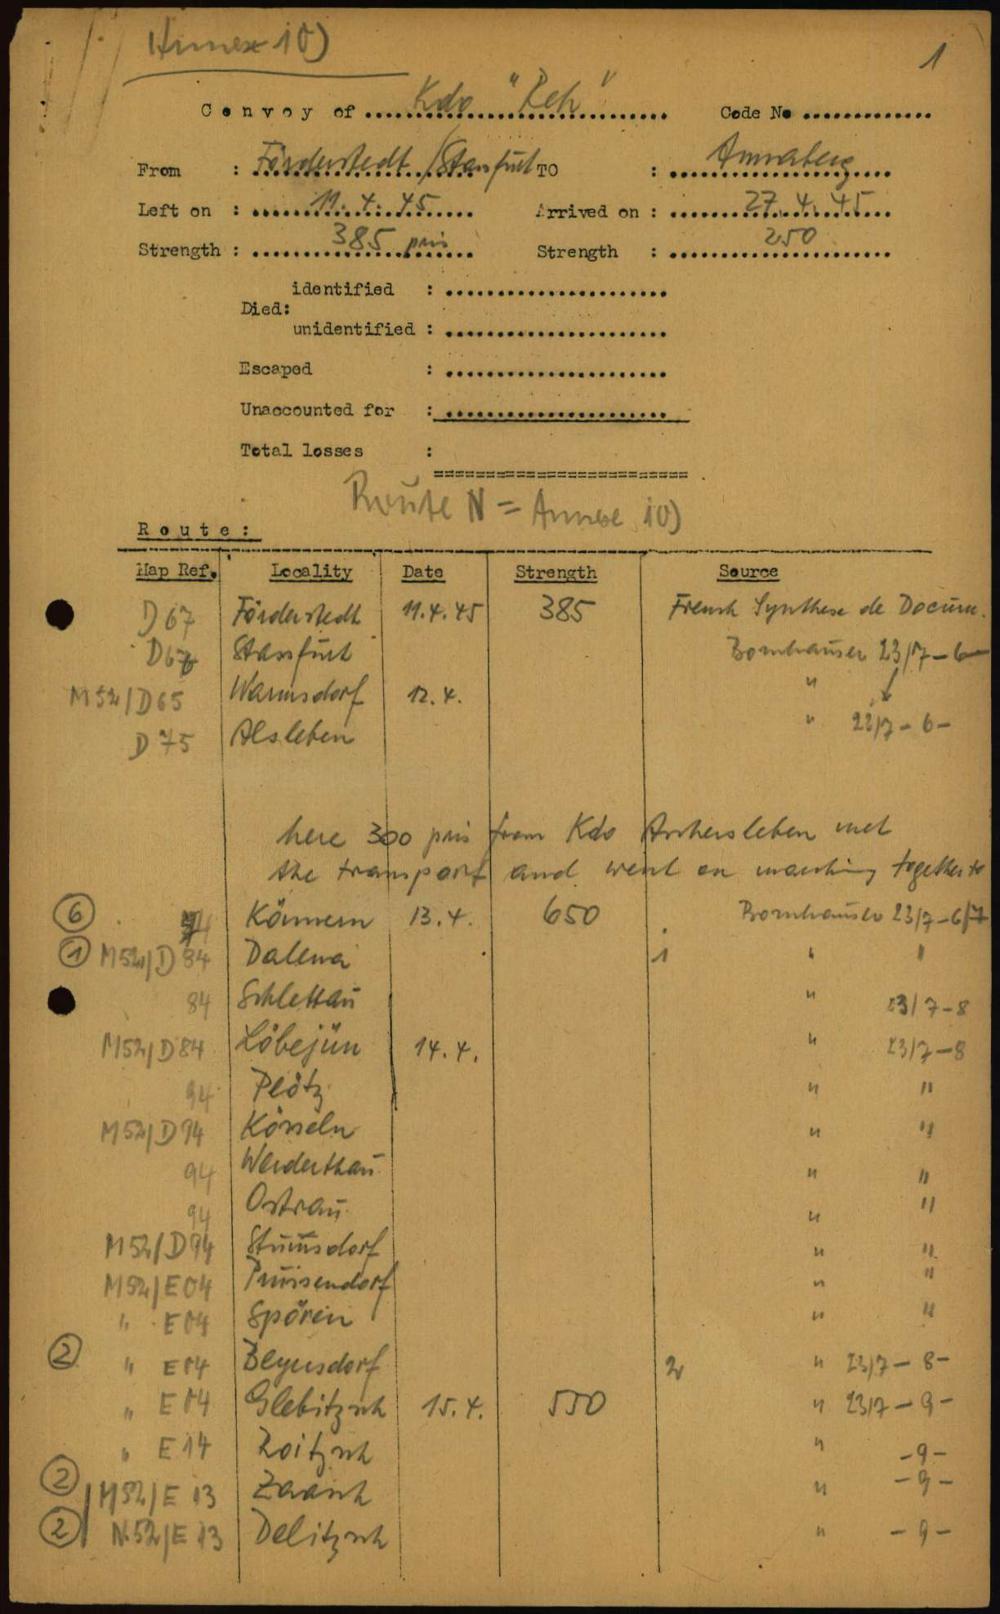 Annexe 10)
1
Convoy of ... Kdo "Reh" ... Code No ...
From : Förderstedt / Stassfurt TO : Annaberg
Left on : 11.4.45 Arrived on : 27.4.45
Strength : 385 pris Strength : 250
identified : ...
Died:
unidentified : ...
Escaped : ...
Unaccounted for : ...
Total losses :
Route N = Annexe 10)
Route:
Map Ref. Locality Date Strength Source
D67 Förderstedt 11.4.45 385 French Synthese de Docum.
D67 Stassfurt Bornhauser 23/7-6-
M52/D65 Warmsdorf 12.4. "
D75 Alsleben " 23/7-6-
here 300 pris from Kdo Aschersleben met
the transport and went on marching together to
6 Könnern 13.4. 650 Bornhauser 23/7-6/7
1 M52/D84 Dalena 1 " "
84 Schlettau " 23/7-8
M52/D84 Löbejün 14.4. " 23/7-8
94 Plötz " "
M52/D94 Kösseln " "
94 Werderthau " "
94 Ostrau " "
M52/D94 Stumsdorf " "
M52/E04 " "
" E04 Spören " "
2 " E04 Beyersdorf 2 " 23/7-8-
" E04 Glebitzsch 15.4. 550 " 23/7-9-
" E14 Roitzsch " -9-
2 M52/E 13 Zaasch " -9-
2 N52/E 13 Delitzsch " -9-